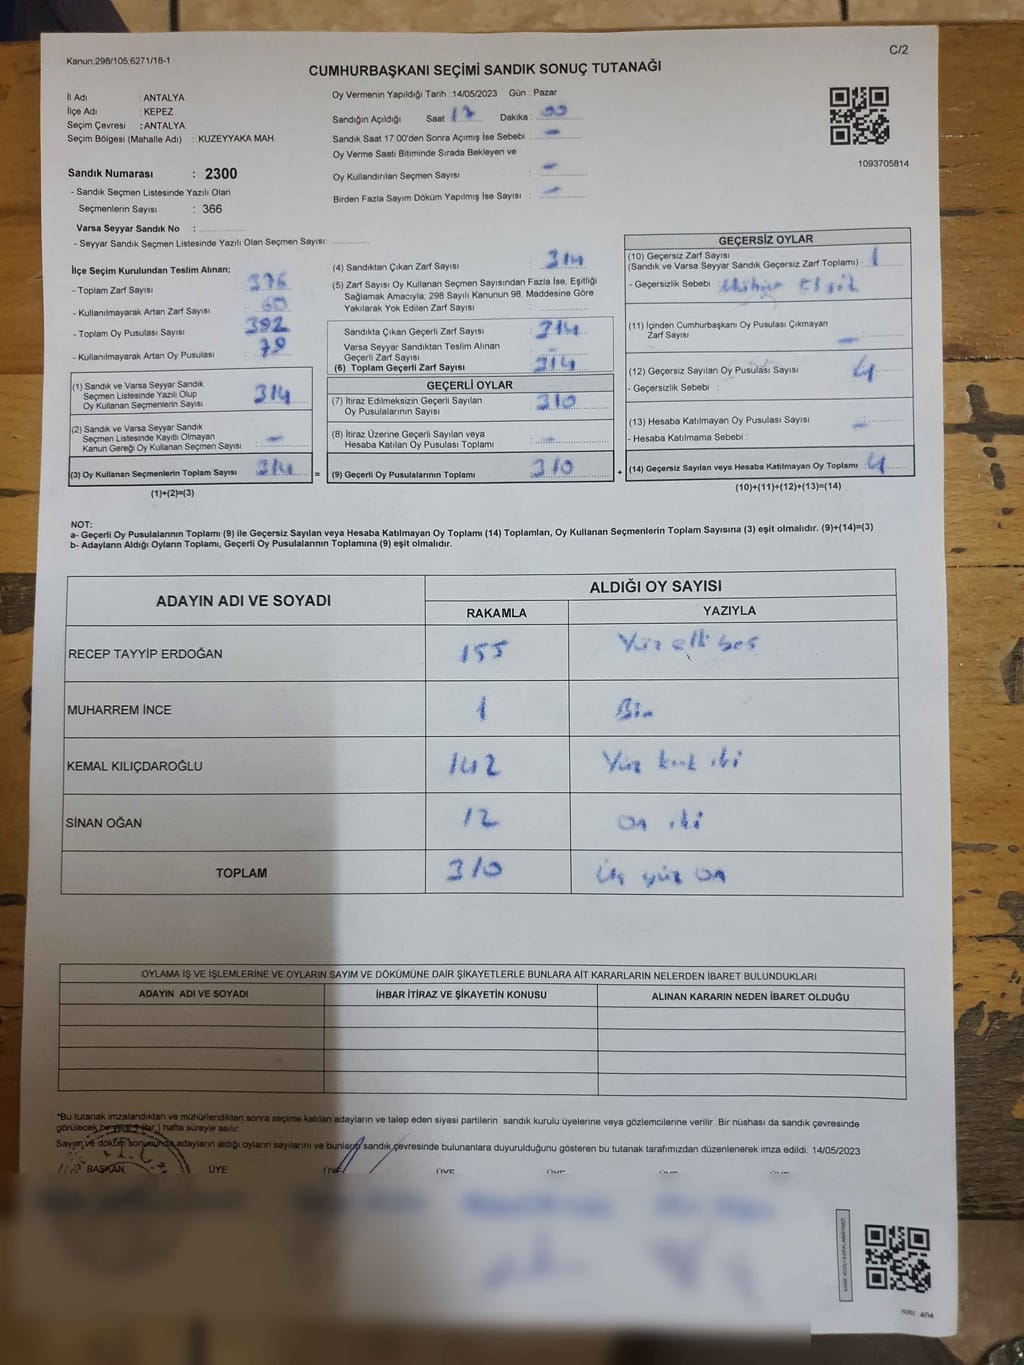 Kanun:298/105,6271/18-1
C/2
CUMHURBAŞKANI SEÇİMİ SANDIK SONUÇ TUTANAĞI
İl Adı : ANTALYA
İlçe Adı : KEPEZ
Seçim Çevresi : ANTALYA
Seçim Bölgesi (Mahalle Adı) : KUZEYYAKA MAH.
Sandık Numarası : 2300
- Sandık Seçmen Listesinde Yazılı Olan
Seçmenlerin Sayısı : 366
Varsa Seyyar Sandık No :
- Seyyar Sandık Seçmen Listesinde Yazılı Olan Seçmen Sayısı:
Oy Vermenin Yapıldığı Tarih :14/05/2023 Gün : Pazar
Sandığın Açıldığı Saat 17 Dakika : 00
Sandık Saat 17:00'den Sonra Açımış İse Sebebi : -
Oy Verme Saati Bitiminde Sırada Bekleyen ve
Oy Kullandırılan Seçmen Sayısı : -
Birden Fazla Sayım Döküm Yapılmış İse Sayısı : -
1093705814
İlçe Seçim Kurulundan Teslim Alınan;
- Toplam Zarf Sayısı : 376
- Kullanılmayarak Artan Zarf Sayısı : 60
- Toplam Oy Pusulası Sayısı : 392
- Kullanılmayarak Artan Oy Pusulası : 78
(1) Sandık ve Varsa Seyyar Sandık
Seçmen Listesinde Yazılı Olup
Oy Kullanan Seçmenlerin Sayısı : 314
(2) Sandık ve Varsa Seyyar Sandık
Seçmen Listesinde Kayıtlı Olmayan
Kanun Gereği Oy Kullanan Seçmen Sayısı : -
(3) Oy Kullanan Seçmenlerin Toplam Sayısı : 314 =
(1)+(2)=(3)
(4) Sandıktan Çıkan Zarf Sayısı : 314
(5) Zarf Sayısı Oy Kullanan Seçmen Sayısından Fazla İse, Eşitliği
Sağlamak Amacıyla, 298 Sayılı Kanunun 98. Maddesine Göre
Yakılarak Yok Edilen Zarf Sayısı :
Sandıkta Çıkan Geçerli Zarf Sayısı : 314
Varsa Seyyar Sandıktan Teslim Alınan
Geçerli Zarf Sayısı : -
(6) Toplam Geçerli Zarf Sayısı : 314
GEÇERLİ OYLAR
(7) İtiraz Edilmeksizin Geçerli Sayılan
Oy Pusulalarının Sayısı : 310
(8) İtiraz Üzerine Geçerli Sayılan veya
Hesaba Katılan Oy Pusulası Toplamı : -
(9) Geçerli Oy Pusulalarının Toplamı : 310 +
GEÇERSİZ OYLAR
(10) Geçersiz Zarf Sayısı
(Sandık ve Varsa Seyyar Sandık Geçersiz Zarf Toplamı) : 1
- Geçersizlik Sebebi : Mühür
(11) İçinden Cumhurbaşkanı Oy Pusulası Çıkmayan
Zarf Sayısı : -
(12) Geçersiz Sayılan Oy Pusulası Sayısı : 4
- Geçersizlik Sebebi :
(13) Hesaba Katılmayan Oy Pusulası Sayısı : -
- Hesaba Katılmama Sebebi :
(14) Geçersiz Sayılan veya Hesaba Katılmayan Oy Toplamı : 4
(10)+(11)+(12)+(13)=(14)
NOT:
a- Geçerli Oy Pusulalarının Toplamı (9) ile Geçersiz Sayılan veya Hesaba Katılmayan Oy Toplamı (14) Toplamları, Oy Kullanan Seçmenlerin Toplam Sayısına (3) eşit olmalıdır. (9)+(14)=(3)
b- Adayların Aldığı Oyların Toplamı, Geçerli Oy Pusulalarının Toplamına (9) eşit olmalıdır.
ADAYIN ADI VE SOYADI ALDIĞI OY SAYISI
RAKAMLA YAZIYLA
RECEP TAYYİP ERDOĞAN 155 Yüz elli beş
MUHARREM İNCE 1 Bir
KEMAL KILIÇDAROĞLU 142 Yüz kırk iki
SİNAN OĞAN 12 On iki
TOPLAM 310 Üç yüz on
OYLAMA İŞ VE İŞLEMLERİNE VE OYLARIN SAYIM VE DÖKÜMÜNE DAİR ŞİKAYETLERLE BUNLARA AİT KARARLARIN NELERDEN İBARET BULUNDUKLARI
ADAYIN ADI VE SOYADI İHBAR İTİRAZ VE ŞİKAYETİN KONUSU ALINAN KARARIN NEDEN İBARET OLDUĞU
*Bu tutanak imzalandıktan ve mühürlendikten sonra seçime katılan adayların ve talep eden siyasi partilerin sandık kurulu üyelerine veya gözlemcilerine verilir .Bir nüshası da sandık çevresinde
görülecek bir yere 1 (bir ) hafta süreyle asılır.
Sayım ve döküm sonucunda adayların aldığı oyların sayılarını ve bunların sandık çevresinde bulunanlara duyurulduğunu gösteren bu tutanak tarafımızdan düzenlenerek imza edildi. 14/05/2023
BAŞKAN ÜYE ÜYE ÜYE ÜYE ÜYE